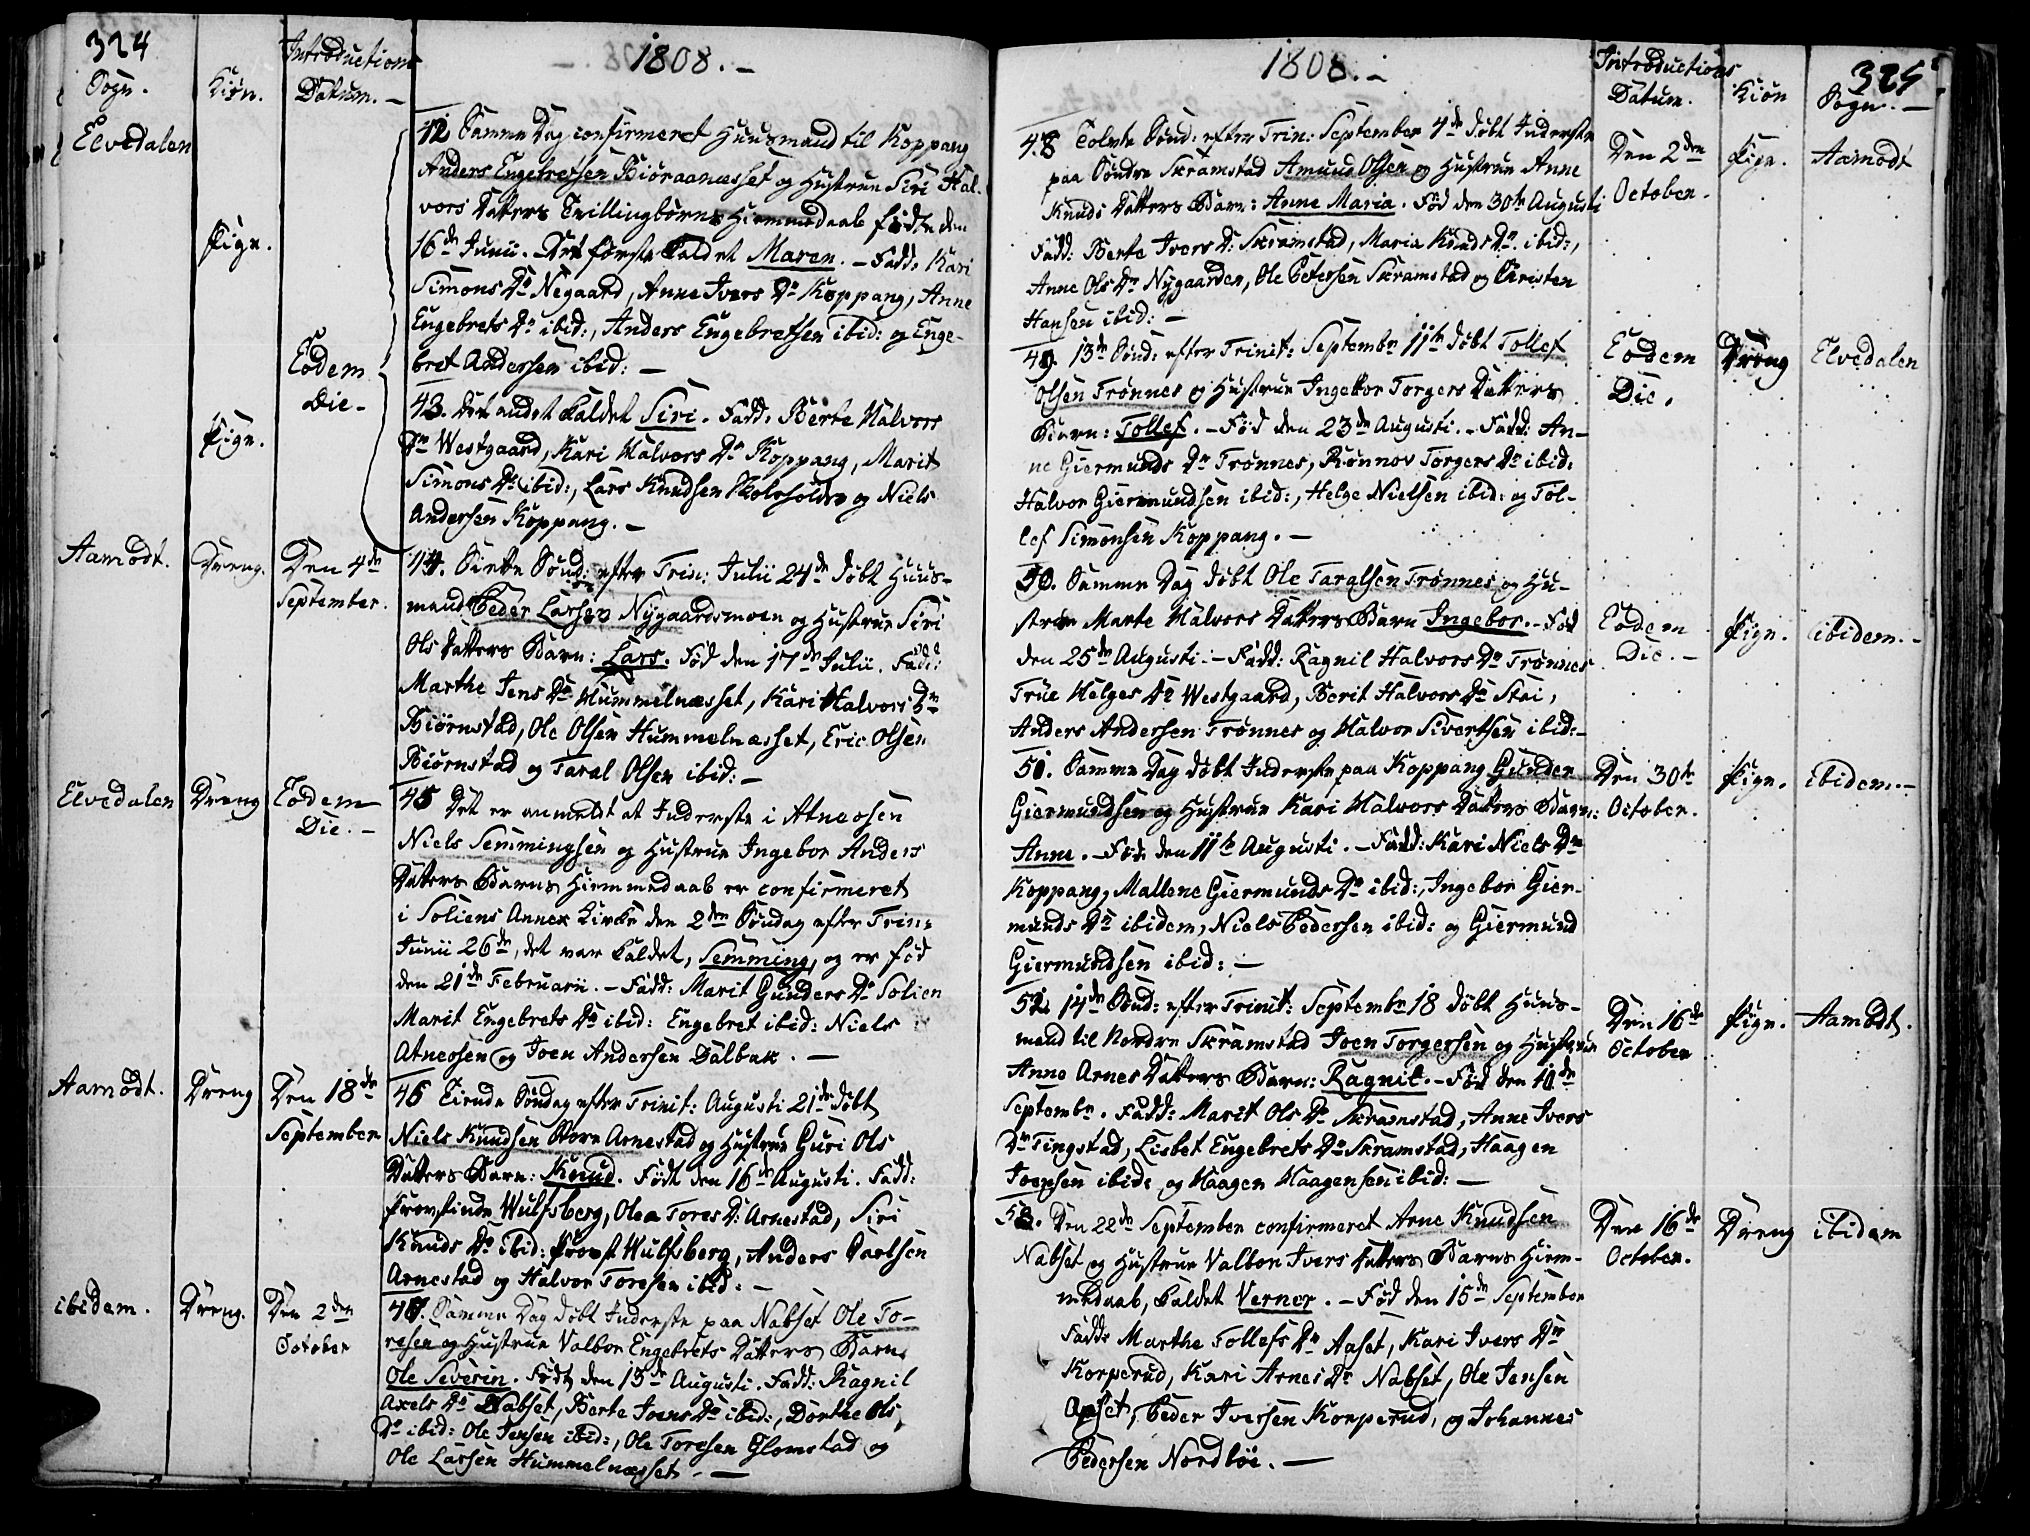 324
Sogn.
Kiøn.
Introductions
Datum. -
1808. -
Elvedalen
42 Samme Dag confirmeret Huusmand til Koppang
Anders Engebretsen Biøraanæsset og Hustrue Siri Hal-
vors Datters Tvillingbørns Hiemmedaab fødte den
Pige.
16de Junii. Det første kaldet Maren. - Fadd: Kari
Simons Dr Negaard, Anne Ivers Dr Koppang, Anne
Engebrets Dr ibid:, Anders Engebretsen ibid: og Enge-
bret Andersen ibid: -
Eodem
Die -
43. Det andet kaldet Siri. Fadd: Berte Halvors
Pige.
Dr Westgaard, Kari Halvors Dr Koppang, Marit
Simons Dr ibid:, Lars Knudsen Skoleholder og Niels
Andersen Koppang. -
Aamodt.
Dreng.
Den 4de
September.
44. Siette Sønd: efter Trin: Julii 24de døbt Huus-
mand Peder Larsen Nygaardsmoen og Hustrue Siri
Ols Datters Barn: Lars. Fød den 17de Julii. Fadd:
Marthe Jens Dr Hummelnæsset, Kari Halvors Dr
Biørnstad, Ole Olsen Hummelnæsset, Eric Olsen
Biørnstad og Taral Olsen ibid: -
Elvedalen
Dreng
Eodem
Die. -
45 Det er anmeldt at Inderste i Atneosen
Niels Semmingsen og Hustrue Ingebor Anders
Datters Barns Hiemmedaab er confirmeret
i Soliens Annex Kirke den 2den Søndag efter Trin:
Junii 26de, det var kaldet, Semming, og er fød
den 21de Februarii. - Fadd: Marit Gunders Dr Solien
Marit Engebrets Dr ibid: Engebret ibid: Niels
Atneosen og Joen Andersen Dalbak. -
Aamodt.
Dreng
Den 18de
September
46 Tiende Søndag efter Trinit: Augusti 21de døbt
Niels Knudsen Store Arnestad og Hustrue Guri Ols
Datters Barn: Knud. Født den 16de Augusti. Fadd:
Provstinde Wulfsberg, Olea Tores D: Arnestad, Siri
Knuds Dr ibid: Provst Wulfsberg, Anders Carlsen
Arnestad og Halvor Toresen ibid: -
ibidem.
Dreng.
Den 2den
October
47. Samme Dag døbt Inderste paa Nabset Ole To-
resen og Hustrue Valbor Engebrets Datters Barn
Ole Severin. Født den 15de Augusti. Fadd: Ragnil
Axels Dr Nabset, Berte Joens Dr ibid:, Dorthe Ols
Dr ibid: Ole Jensen ibid:, Ole Toresen Glomstad og
Ole Larsen Hummelnæsset. -
1808. -
Introductions
Datum.
Kiøn
325
Sogn. -
48 Tolvte Sønd: efter Trin: September 4de døbt Inderste
paa Søndre Skramstad Amund Olsen og Hustrue Anne
Knuds Datters Barn: Anne Maria. Fød den 30te Augusti
Fadd: Berte Ivers D: Skramstad, Maria Knuds Dr. ibid:,
Anne Ols Dr Nygaarden, Ole Petersen Skramstad og Christen
Hansen ibid: -
Den 2den
October.
Pige.
Aamodt
49. 13de Sønd: efter Trinit: Septembr 11te døbt Tollef
Olsen Trønnes og Hustrue Ingebor Torgers Datters
Barn: Tollef. - Fød den 23de Augusti. - Fadd: An-
ne Giermunds Dr Trønnes, Rønnov Torgers Dr ibid:
Halvor Giermundsen ibid:, Helge Nielsen ibid: og Tol-
lef Simonsen Koppang. -
Eodem
Die.
Dreng
Elvedalen
50. Samme Dag døbt Ole Taralsen Trønnes og Hu-
strue Marte Halvors Datters Barn Ingebor. - Fød
den 25de Augusti. - Fadd: Ragnil Halvors Dr Trønnes
True Helges Dr Westgaard, Berit Halvors Dr Stai,
Anders Andersen Trønnes og Halvor Sivertsen ibid: -
Eodem
Die. -
Pige.
ibidem. -
51. Samme Dag døbt Inderste paa Koppang Gunder
Giermundsen og Hustrue Kari Halvors Datters Barn:
Anne. - Fød den 11te Augusti. - Fadd: Kari Niels Dr
Koppang, Mallene Giermunds Dr ibid:, Ingebor Gier-
munds Dr ibidem, Niels Pedersen ibid: og Giermund
Giermundsen ibid: -
Den 30te
October.
Pige.
ibidem. -
52. 14de Sønd: efter Trinit: Septembr 18 døbt Huus-
mand til Nordre Skramstad Joen Torgersen og Hustrue
Anne Arnes Datters Barn: Ragnil. - Fød den 10de
Septembr. Fadd: Marit Ols Dr Skramstad, Anne Ivers
Dr Tingstad, Lisbet Engebrets Dr Skramstad, Haagen
Joensen ibid: og Haagen Haagensen ibid: -
Den 16de
October
Pige.
Aamodt.
53. Den 22de September confirmeret Arne Knudsen
Nabset og Hustrue Valbor Ivers Datters Barns Hiem-
medaab, kaldet Verner. - Fød den 15de September
Fadd: Marthe Tollefs Dr Aaset, Kari Ivers Dr
Korperud, Kari Arnes Dr Nabset, Ole Jensen
Aaset, Peder Iversen Korperud, og Johannes
Pedersen Nordløi. -
Den 16de
October.
Dreng
ibidem